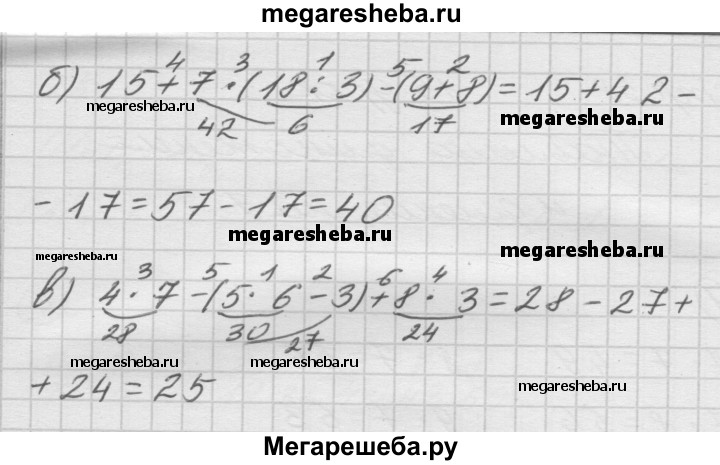 megaresheba.ru
4 3 1 5 2
б) 15+7·(18:3)-(9+8)=15+42-
megaresheba.ru
42 6 17
megaresheba.ru
-17=57-17=40
megaresheba.ru
megaresheba.ru
megaresheba.ru
3 5 1 2 6 4
в) 4·7-(5·6-3)+8·3=28-27+
28 30 27 24
megaresheba.ru
megaresheba.ru
megaresheba.ru
+24=25
Мегарешеба.ру